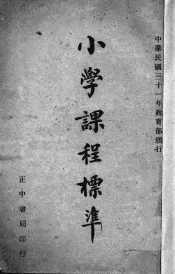 中華民國二十一年教育部頒行
小學課程標準
正中書局印行